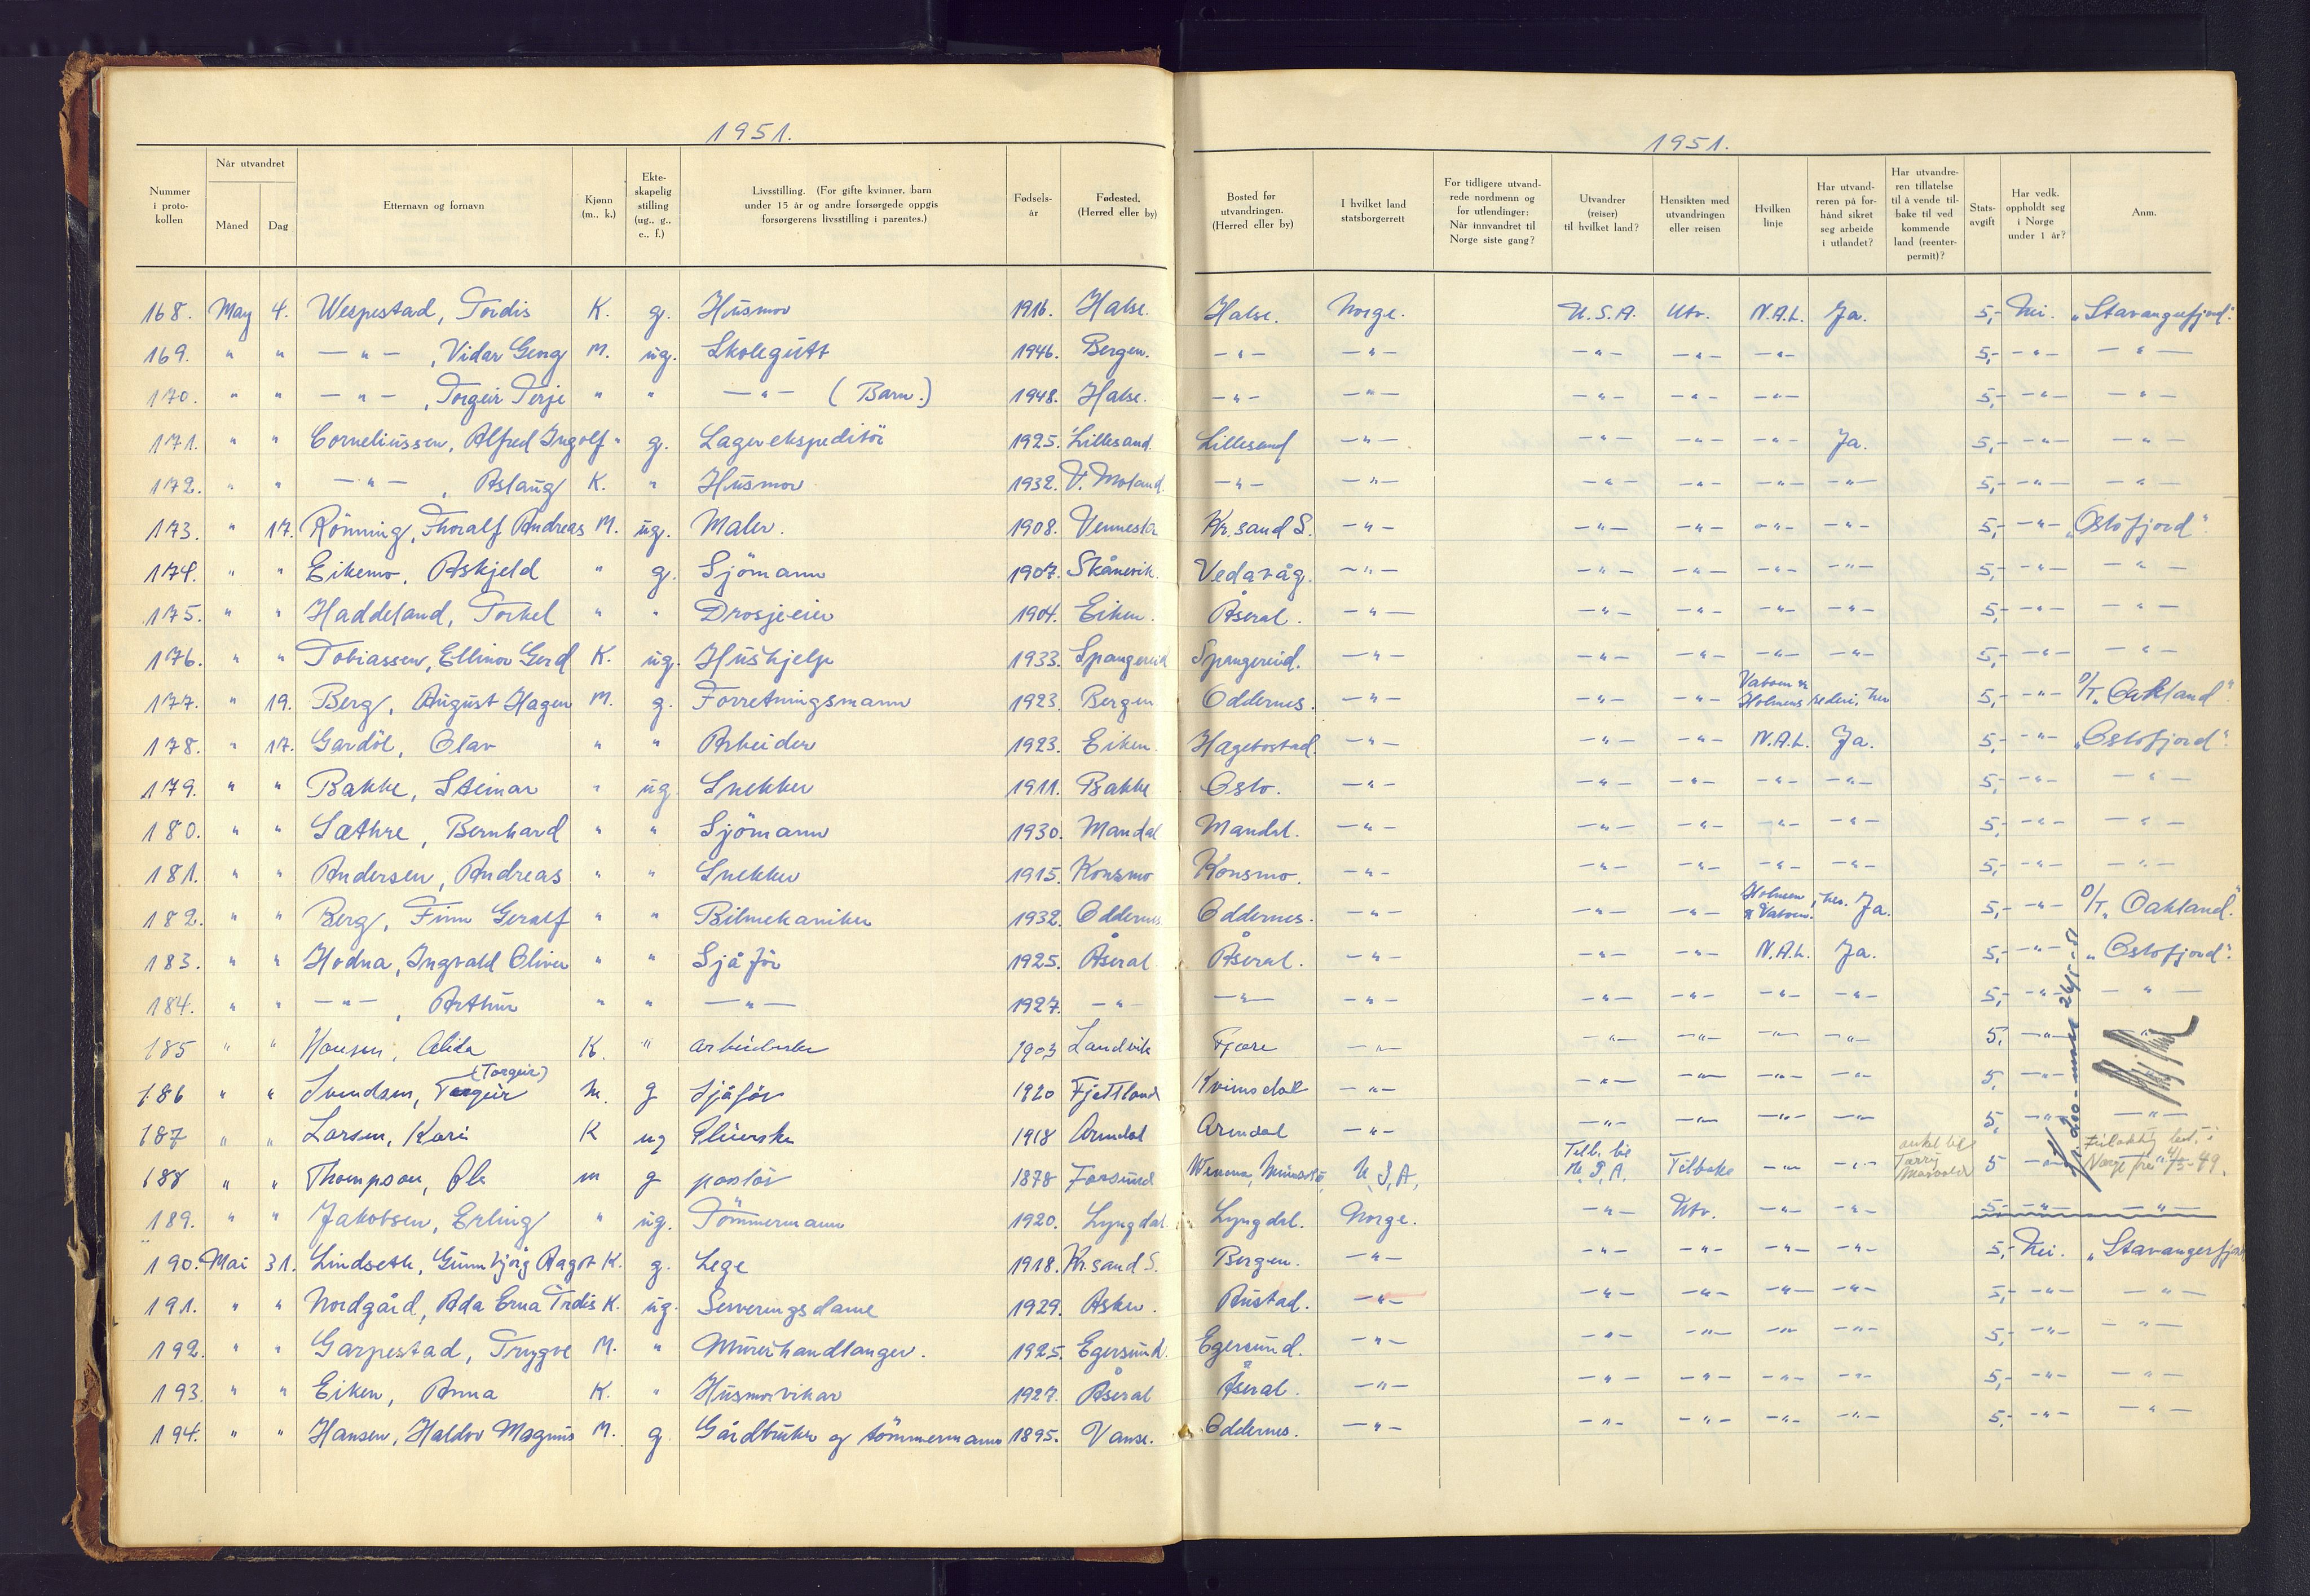 1951.
1951.
Nummer i protokollen | Når utvandret Måned Dag | Etternavn og fornavn | Kjønn (m., k.) | Ekteskapelig stilling (ug., g., e., f.) | Livsstilling. (For gifte kvinner, barn under 15 år og andre forsørgede oppgis forsørgerens livsstilling i parentes.) | Fødselsår | Fødested. (Herred eller by) | Bosted før utvandringen. (Herred eller by) | I hvilket land statsborgerrett | For tidligere utvandrede nordmenn og for utlendinger: Når innvandret til Norge siste gang? | Utvandrer (reiser) til hvilket land? | Hensikten med utvandringen eller reisen | Hvilken linje | Har utvandreren på forhånd sikret seg arbeide i utlandet? | Har utvandreren tillatelse til å vende tilbake til vedkommende land (reenterpermit)? | Statsavgift | Har vedk. oppholdt seg i Norge under 1 år? | Anm.
168. May 4. Wespestad, Tordis K. g. Husmor 1916. Halse. Halse. Norge. U.S.A. Utv. N.A.L. Ja. 5,- Nei. "Stavangerfjord".
169. " " — " — , Vidar Georg M. ug. Skolegutt 1946. Bergen. — " — — " — — " — — " — — " — 5,- — " — — " —
170. " " — " — , Torgeir Terje " " — " — (Barn.) 1948. Halse. — " — — " — — " — — " — — " — 5,- — " — — " —
171. " " Corneliussen, Alfred Ingolf " g. Lagerekspeditör 1925. Lillesand. Lillesand — " — — " — — " — — " — Ja. 5,- — " — — " —
172. " " — " — , Aslaug K. " Husmor 1932. V. Moland. — " — — " — — " — — " — — " — — " — 5,- — " — — " —
173. " 17. Rönning, Thoralf Andreas M. ug. Maler. 1908. Vennesla Kr.sand S. — " — — " — — " — — " — — " — 5,- — " — "Oslofjord".
174. " " Eikemo, Askjeld " g. Sjömann 1907. Skånevik. Vedavåg. — " — — " — — " — — " — — " — 5,- — " — — " —
175. " " Haddeland, Torkel " " Drosjeeier 1904. Eiken. Åseral. — " — — " — — " — — " — — " — 5,- — " — — " —
176. " " Tobiassen, Ellinor Gerd K. ug. Hushjelp 1933. Spangereid Spangereid. — " — — " — — " — — " — — " — 5,- — " — — " —
177. " 19. Berg, August Hagen M. g. Forretningsmann 1923. Bergen Oddernes. — " — — " — — " — Holmens rederi, 5,- — " — D/T. "Oakland".
178. " 17. Gardöl, Olav " " Arbeider 1923. Eiken. Hægebostad. — " — — " — — " — N.A.L. Ja. 5,- — " — "Oslofjord".
179. " " Bakke, Steinar " ug. Snekker 1911. Bakke Oslo. — " — — " — — " — — " — — " — 5,- — " — — " —
180. " " Sæthre, Bernhard " " Sjömann 1930. Mandal Mandal. — " — — " — — " — — " — — " — 5,- — " — — " —
181. " " Andersen, Andreas " " Snekker 1915. Konsmo Konsmo. — " — — " — — " — — " — — " — 5,- — " — — " —
182. " " Berg, Finn Geralf " " Bilmekaniker 1932. Oddernes Oddernes. — " — — " — — " — Ja. 5,- — " — D/T. "Oakland".
183. " " Hodna, Ingvald Oliver " " Sjåför 1925. Åseral Åseral. — " — — " — — " — N.A.L. Ja. 5,- — " — "Oslofjord".
184. " " — " — , Arthur " " — " — 1927. — " — — " — — " — — " — — " — — " — — " — 5,- — " — — " —
185 " " Hansen, Alida K. " arbeiderske 1903 Landvik Fjære — " — — " — — " — — " — — " — 5, — " —
186 " " Svendsen, Torgeir (Torgeir) M. g Sjåför 1920 Fjotland Kvinesdal — " — — " — — " — — " — — " — 5, — " —
187 " " Larsen, Kari K ug 1918 Arendal Arendal — " — — " — — " — — " — — " — 5, — " — — " —
188 " " Thompson, Ole m g pastör 1878 Farsund U.S.A. Tilb. til U.S.A. Tilbake — " — — " — 5 — " — Norge
189. " " Jakobsen, Erling " ug. Tömmermann 1920. Lyngdal. Lyngdal. Norge. — " — Utv. — " — — " — 5,- — " — — " —
190. Mai 31. Lindseth, Gunnbjörg Ragot K. g. Lege 1918. Kr.sand S. Bergen. — " — — " — — " — — " — — " — 5,- Nei. "Stavangerfjord
191. " " Nordgård, Ada Erna Trdis K. ug. Serveringsdame 1929. Asker. Austad. — " — — " — — " — — " — — " — 5,- — " — — " —
192. " " Garpestad, Trygve M. " Murerhandlanger. 1925. Egersund. Egersund. — " — — " — — " — — " — — " — 5,- — " — — " —
193. " " Eiken, Anna K. " Husmorvikar 1927. Åseral Åseral. — " — — " — — " — — " — — " — 5,- — " — — " —
194. " " Hansen, Haldor Magnus M. g. Gårdbruker og tömmermann 1895. Vanse. Oddernes. — " — — " — — " — — " — — " — 5,- — " — — " —